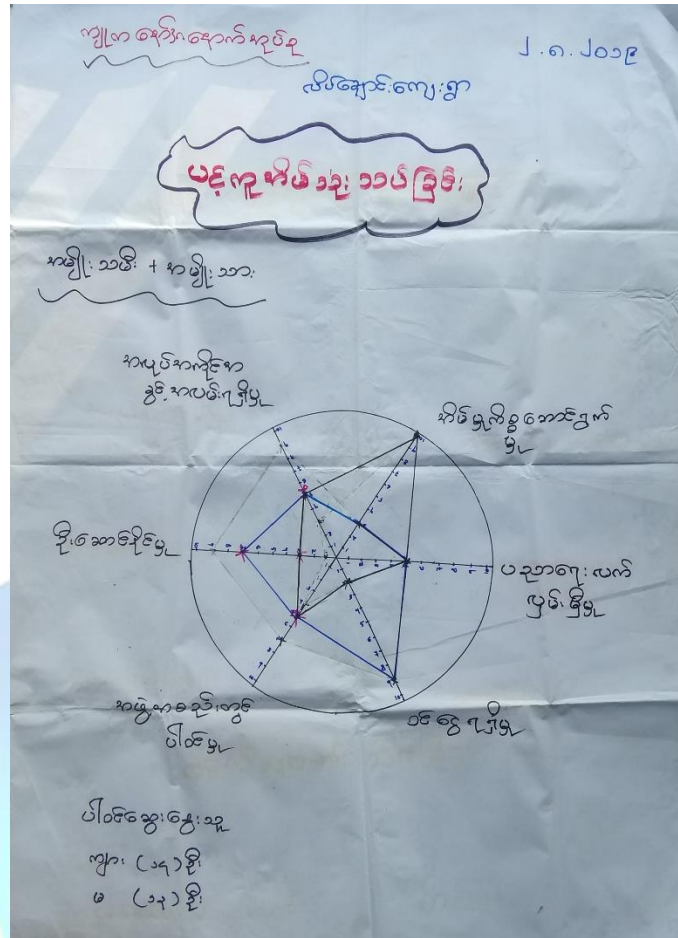 ကျုကနော်အနောက်အုပ်စု
၂.၈.၂၀၁၉
လိပ်ချောင်းကျေးရွာ
ပင့်ကူအိမ်သုံးသပ်ခြင်း
အမျိုးသမီး + အမျိုးသား
အလုပ်အကိုင်အ
ခွင့်အလမ်းရရှိမှု
အိမ်မှုကိစ္စဆောင်ရွက်
မှု
ဦးဆောင်နိုင်မှု
ပညာရေးလက်
လှမ်းမှီမှု
အဖွဲ့အစည်းတွင်
ပါဝင်မှု
ဝင်ငွေရရှိမှု
ပါဝင်ဆွေးနွေးသူ
ကျား (၁၄) ဦး
မ (၁၃) ဦး